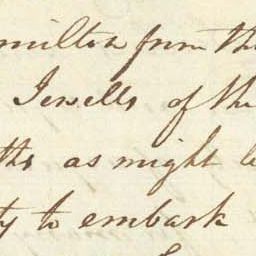 milton from the
Jewells of the
ths as might be
ty to embark